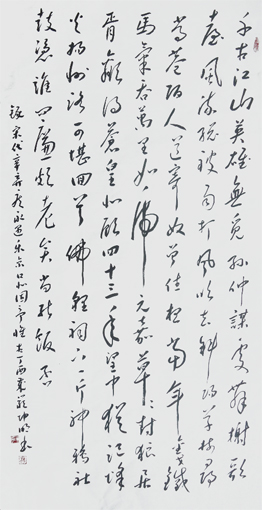 千古江山英雄無覓孫仲謀處舞榭歌
臺風流總被雨打風吹去斜陽草樹尋
常巷陌人道寄奴曾住想當年金戈鐵
馬氣吞萬里如虎元嘉草々封狼居
胥贏得蒼皇北顧四十三年望中猶記烽
火揚州路可堪回首佛貍祠下一片神鴉社
鼓憑誰問廉頗老矣尚能飯否
錄宋代辛棄疾永遇樂京口北固亭懷古丁酉書